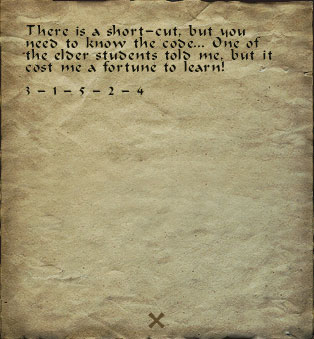 There is a short-cut, but you
need to know the code... One of
the elder students told me, but it
cost me a fortune to learn!
3 - 1 - 5 - 2 - 4